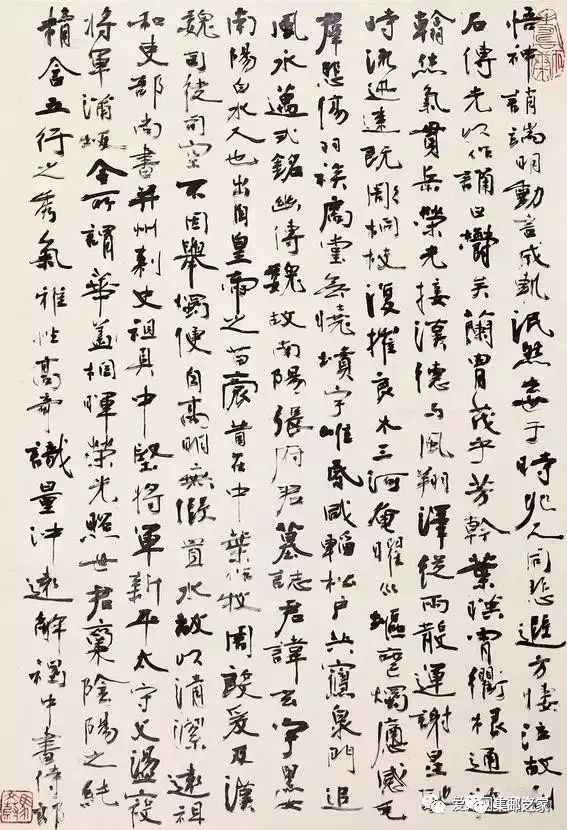 悟神詣端明動言成軌泯然去世于時兆人同悲遐方悽泣故刊
石傳光以作誦曰鬱矣蘭胄茂乎芳幹葉映霄衢根通海
翰烋氣貫岳榮光接漢德与風翔澤從雨散運謝星馳
時流迅速既彫桐枝復摧良木三河奄曜燭痛感毛
群悲傷羽族扃堂無曉墳宇唯昏咸韜松戶共寢泉門追
風永邁式銘幽傳魏故南陽張府君墓誌君諱玄字黑女
南陽白水人也出自皇帝之苗裔昔在中葉作牧周殷爰及漢
魏司徒司空不因舉燭便自高明無假置水故以清潔遠祖
和吏部尚書并州刺史祖具中堅將軍新平太守父盪寇
將軍蒲坂令所謂華蓋相暉榮光照世君稟陰陽之純
精含五行之秀氣雅性高奇識量沖遠解褐中書侍郎
网集邮之家